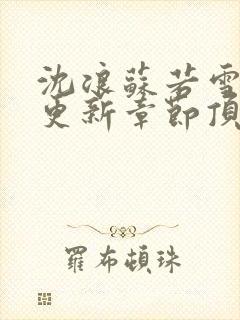 沈浪蘇若雪
更新章節頂
羅布頓珠